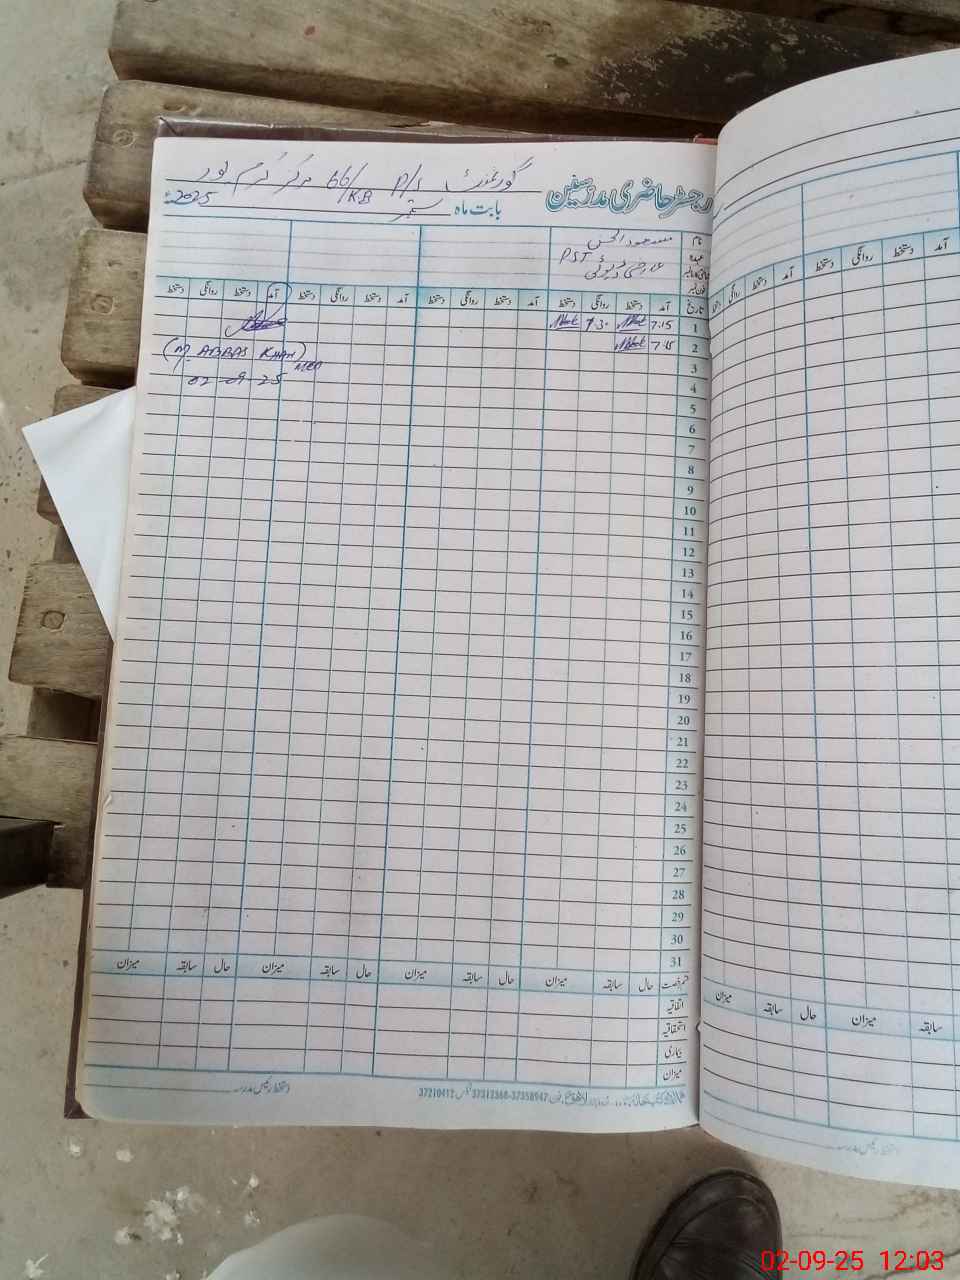 رجسٹر حاضری مدرسین گورنمنٹ P/S 66/KB مرکز کرم پور
بابت ماہ ستمبر 2025ء
نام مسعود الحسن
عہدہ PST
عارضی ڈیوٹی
تاریخ آمد دستخط روانگی دستخط آمد دستخط روانگی دستخط آمد دستخط روانگی دستخط آمد دستخط روانگی دستخط
1 7.15 9.30
2 7.15
(M. ABBAS KHAN)
3
02-09-25
4
5
6
7
8
9
10
11
12
13
14
15
16
17
18
19
20
21
22
23
24
25
26
27
28
29
30
31
قسم رخصت حال سابقہ میزان حال سابقہ میزان حال سابقہ میزان حال سابقہ میزان
اتفاقیہ
استحقاقیہ
بیماری
میزان
دستخط رئیس مدرسہ
فون 37358947-37312368 فیکس 37210412
آمد دستخط روانگی دستخط آمد دستخط روانگی دستخط
سابقہ میزان حال سابقہ میزان
دستخط رئیس مدرسہ
02-09-25 12:03